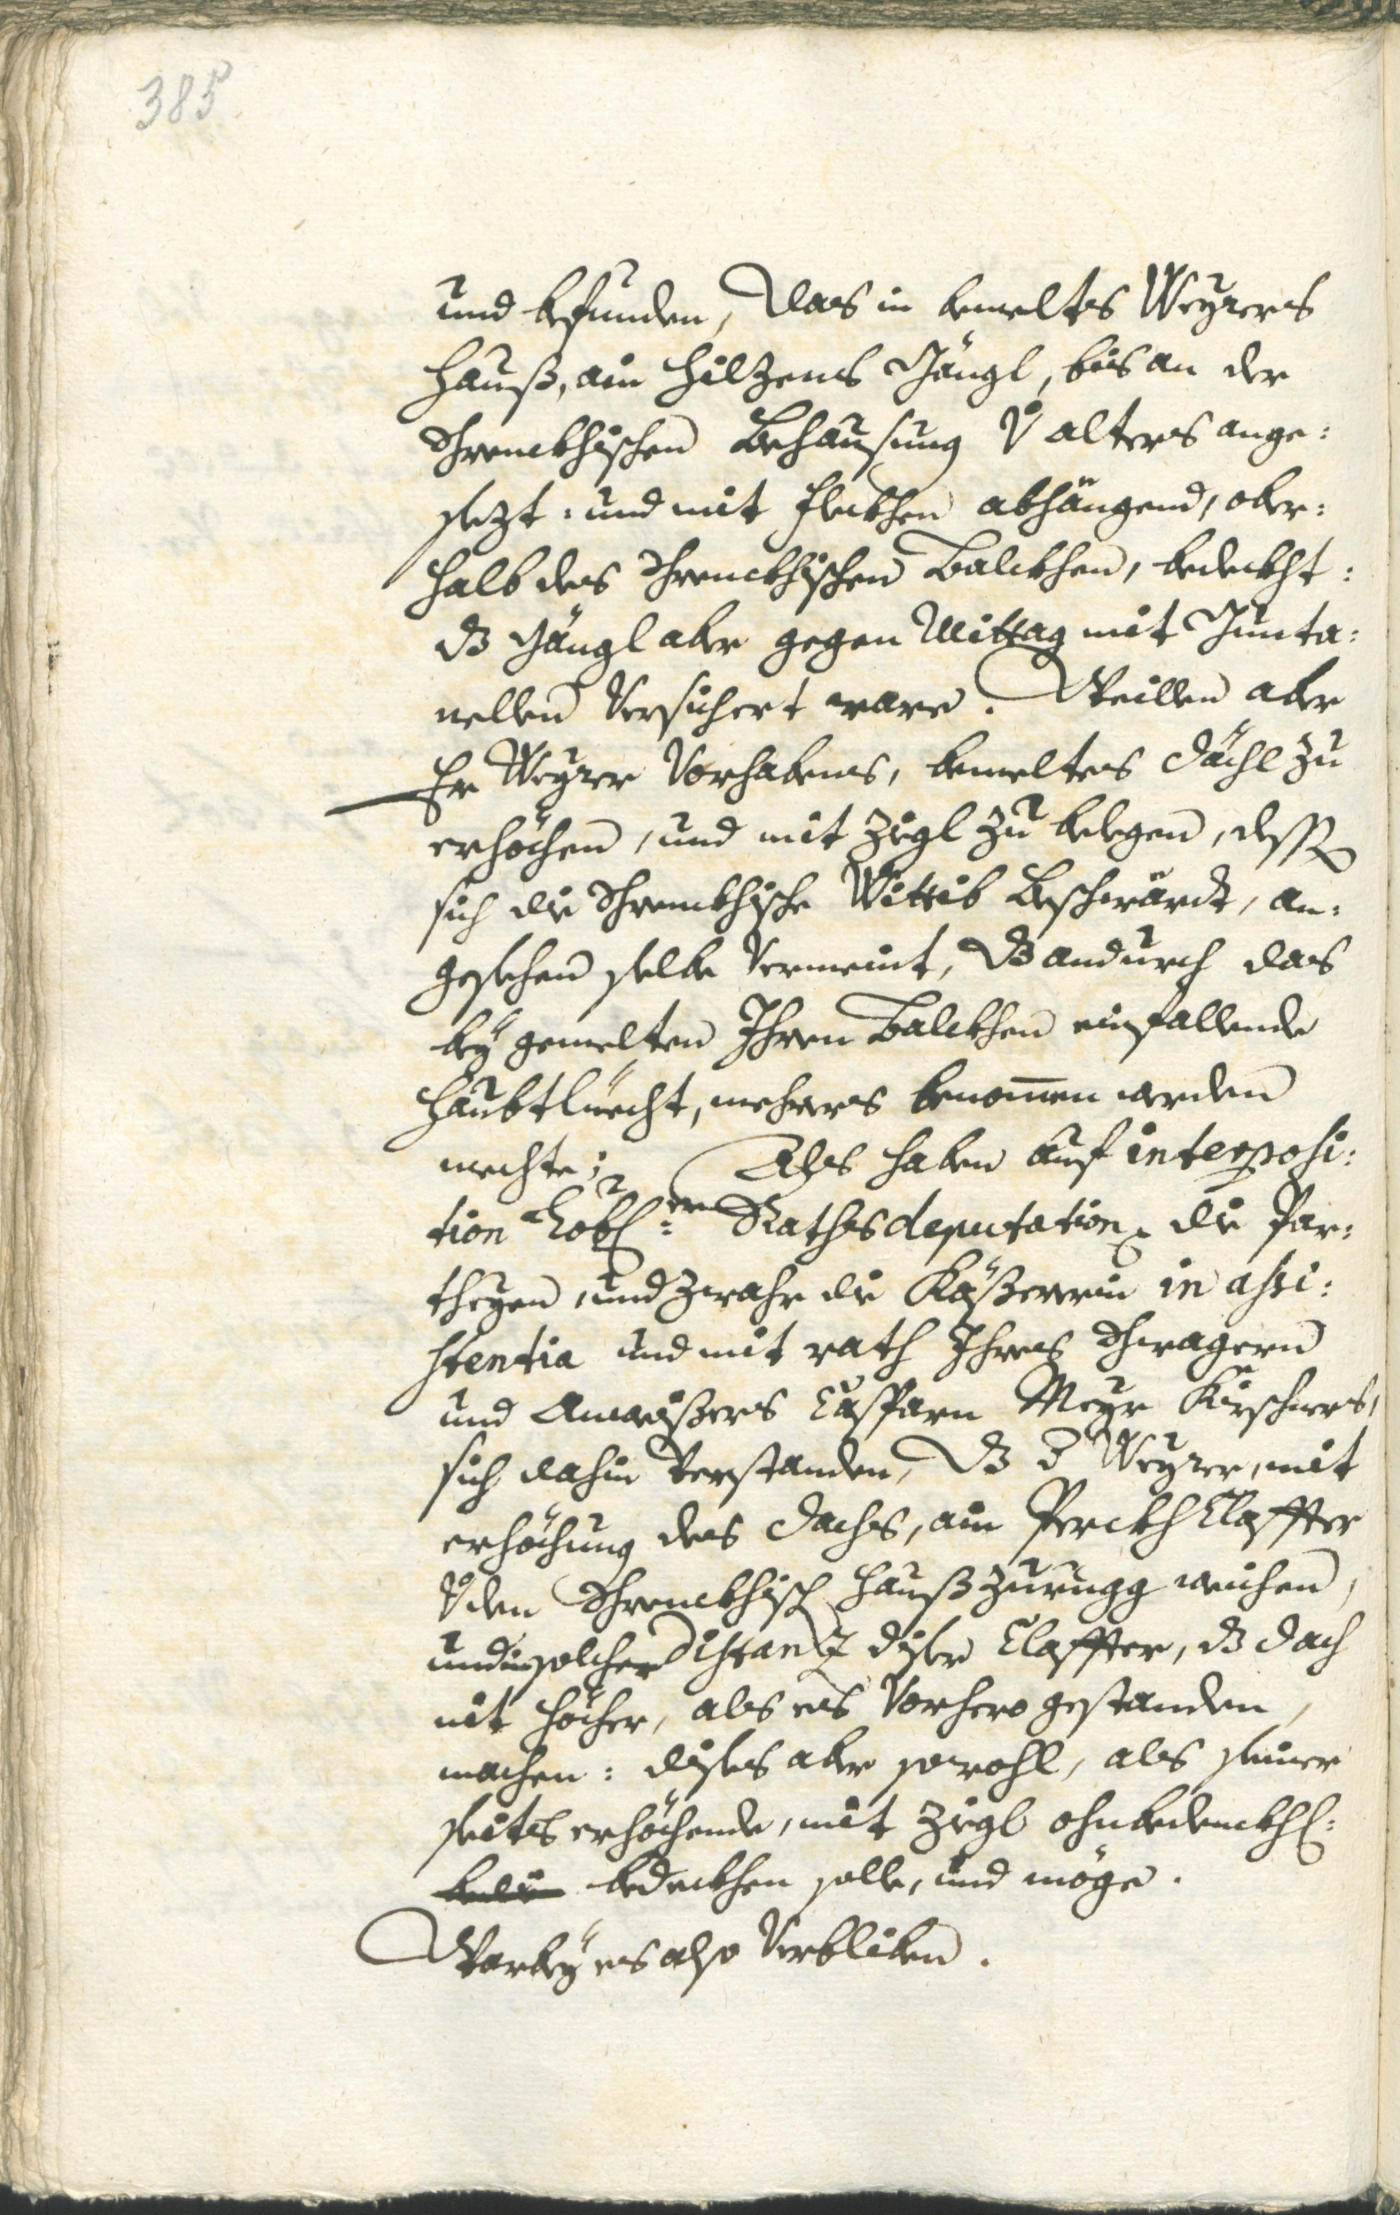 385
und befunden, das in bemeltes Weyrers
Hauß, ain hilzenes Gängl, bis an der
Schrenckhischen Behausung v alters ange:
sezt: und mit Fleckhen abhängend, ober:
halb des Schrenckhischen Balckhen, bedeckht:
dz Gängl aber gegen Mittag mit Junta:
nellen versichert ware. Weillen aber
Er Weyrer vorhabens, bemeltes dächl zu
erhöchen, und mit zigl zu belegen, dessen
sich die Schrenckhische Wittib beschwärdt, an:
gesehen selbe vermeint, dz andurch das
bey gemelten Ihren Balckhen einfallende
Haubtliecht, mehrers benommen werden
mechte; Als haben auf interposi:
tion Löbl:er Rathsdeputation die Par:
theyen, und zwahr die in assi:
stentia und mit rath Ihres Schwagern
und Anweisers Casparn Mayr Kirschners,
sich dahin verstanden, dz d Weyrer, mit
erhöchung des dachs, ain Perckh Claffter
v den Schrenckhisch Hauß zurugg weichen,
und in solcher distanz diser Claffter, dz dach
nit höcher, als es vorhero gestanden,
machen: dises aber sowohl, als seiner
seits erhöchende, mit zigl ohnbedenckhl:
bedeckhen solle, und möge.
Warbey es also verbliben.